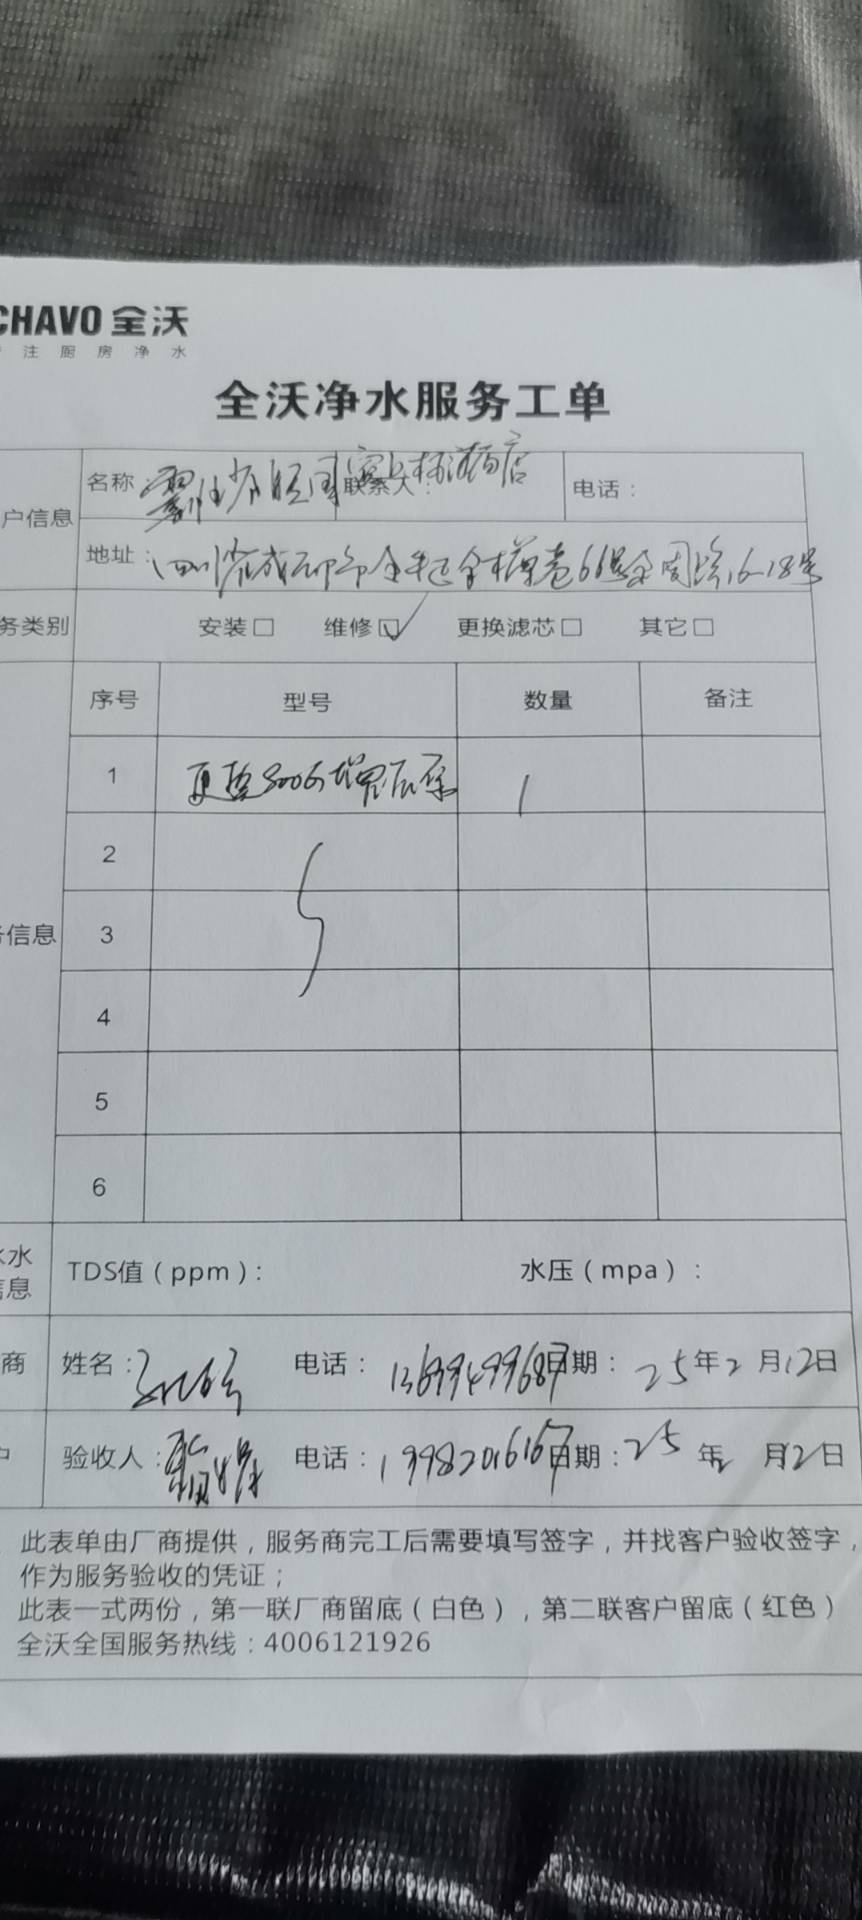 CHAVO 全沃
注厨房净水
全沃净水服务工单
户信息
名称
联系人:
电话:
地址: 四川省成都市金牛区金 66号 16-18号
务类别
安装□ 维修☑ 更换滤芯□ 其它□
序号 型号 数量 备注
1 更换800G增压泵 1
2
信息 3
4
5
6
水
信息
TDS值(ppm): 水压(mpa):
商 姓名: 电话: 13699499687 日期: 25年2月12日
户 验收人: 电话: 日期: 25年2月12日
此表单由厂商提供,服务商完工后需要填写签字,并找客户验收签字,
作为服务验收的凭证;
此表一式两份,第一联厂商留底(白色),第二联客户留底(红色)
全沃全国服务热线:4006121926